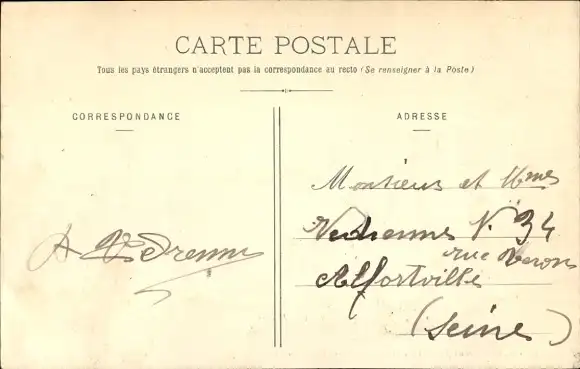 CARTE POSTALE
Tous les pays étrangers n'acceptent pas la correspondance au recto (Se renseigner à la Poste)
CORRESPONDANCE
ADRESSE
A Vedrenne
Monsieur et Mmes
Vedrennes N. 34
rue Véron
Alfortville
(Seine)